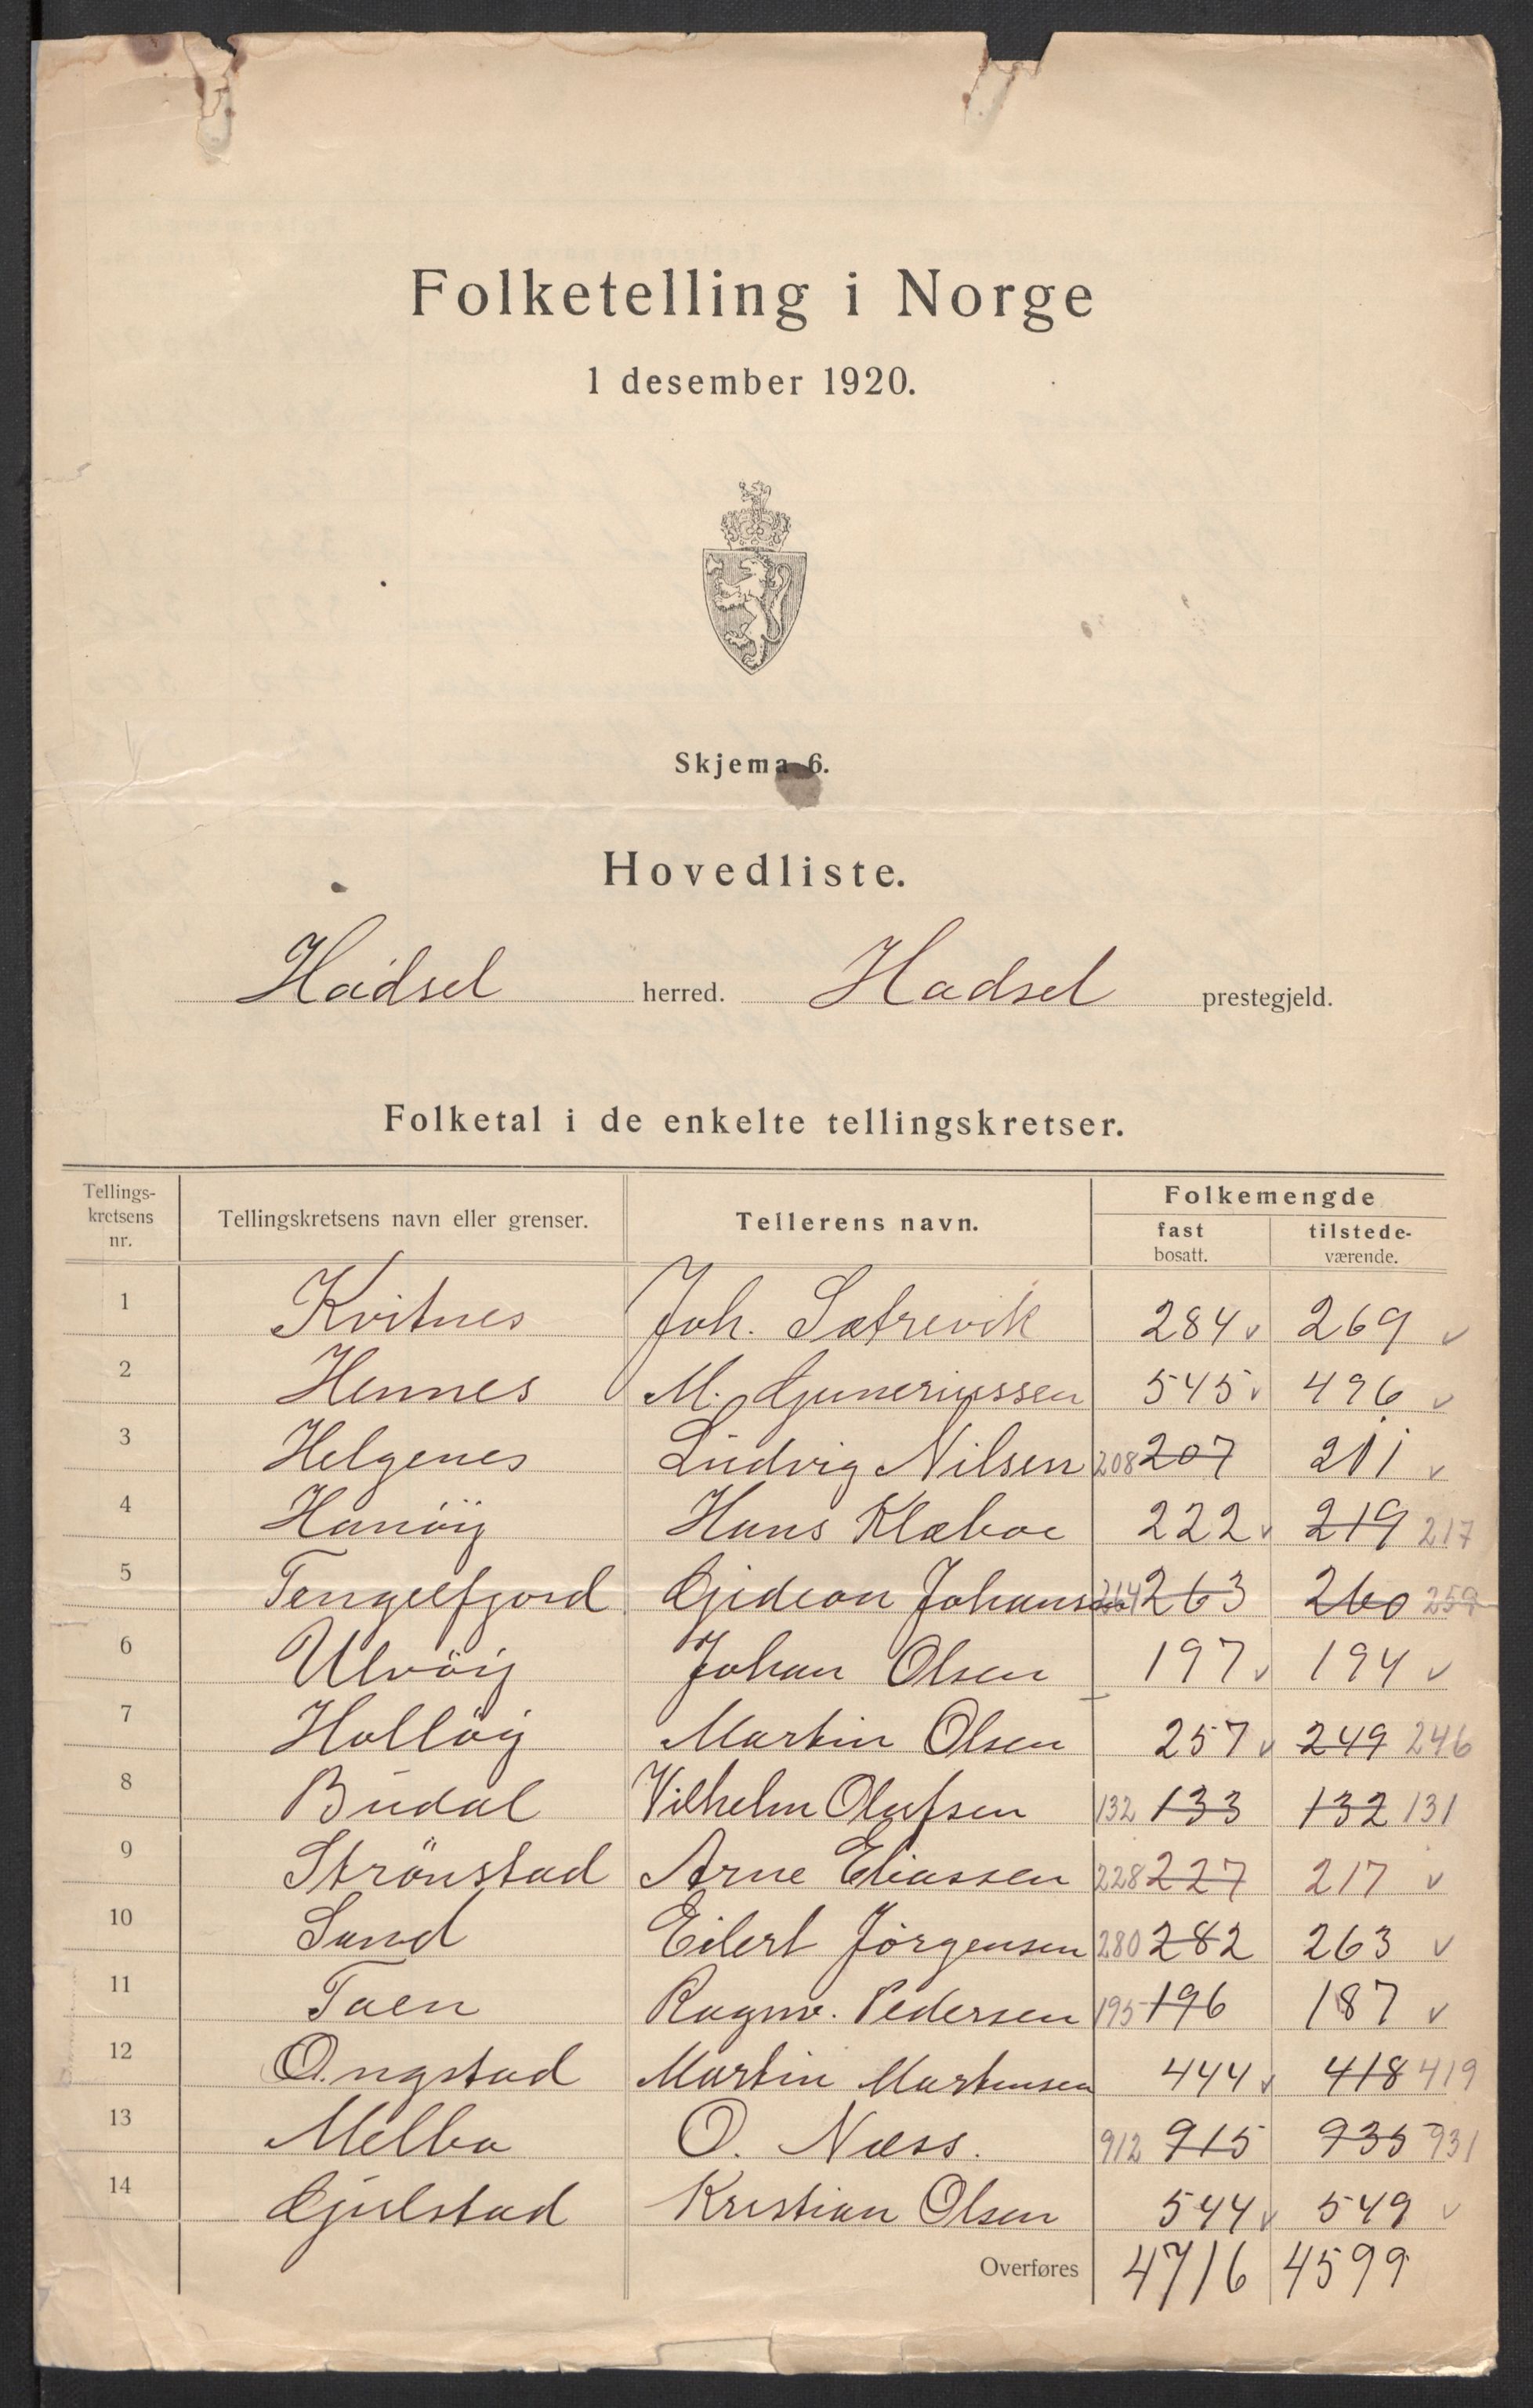 Folketelling i Norge
1 desember 1920.
Skjema 6.
Hovedliste.
Hadsel herred. Hadsel prestegjeld.
Folketal i de enkelte tellingskretser.
Tellings-kretsens nr. Tellingskretsens navn eller grenser. Tellerens navn. Folkemengde fast bosatt. tilstede-værende.
1 Kvitnes Joh. Sætrevik 284 v 269 v
2 Hennes M. Guneriussen 545 v 496 v
3 Helgenes Ludvig Nilsen 208 207 211 v
4 Hanöy Hans Klæboe 222 v 219 217
5 Tengelfjord Gideon Johansen 264 263 260 259
6 Ulvöy Johan Olsen 197 v 194 v
7 Hollöy Martin Olsen 257 v 249 246
8 Budal Vilhelm Olufsen 132 133 132 131
9 Strönstad Arne Eliassen 228 227 217 v
10 Sand Eilert Jörgensen 280 282 263 v
11 Taen Ragnv. Pedersen 195 196 187 v
12 Ongstad Martin Martensen 444 v 418 419
13 Melbo O. Næss. 912 915 935 931
14 Gjulstad Kristian Olsen 544 v 549 v
Overføres 4716 4599